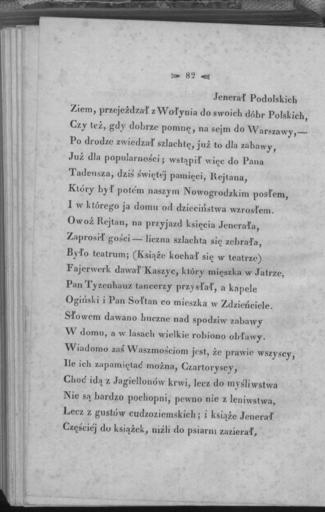 82
Jenerał Podolskich
Ziem, przejeżdzał z Wołynia do swoich dóbr Polskich,
Czy też, gdy dobrze pomnę, na sejm do Warszawy,—
Po drodze zwiedzał szlachtę, już to dla zabawy,
Już dla popularności; wstąpił więc do Pana
Tadeusza, dziś świętéj pamięci, Rejtana,
Który był potém naszym Nowogrodzkim posłem,
I w którego ja domu od dzieciństwa wzrosłem.
Owoż Rejtan, na przyjazd księcia Jenerała,
Zaprosił gości — liczna szlachta się zebrała,
Było teatrum; (Książe kochał się w teatrze)
Fajerwerk dawał Kaszyc, który mięszka w Jatrze,
Pan Tyzenhauz tancerzy przysłał, a kapele
Ogiński i Pan Sołtan co mieszka w Zdzieńciele.
Słowem dawano huczne nad spodziw zabawy
W domu, a w lasach wielkie robiono obławy.
Wiadomo zaś Waszmościom jest, że prawie wszyscy,
Ile ich zapamiętać można, Czartoryscy,
Choć idą z Jagiellonów krwi, lecz do myśliwstwa
Nie są bardzo pochopni, pewno nie z leniwstwa,
Lecz z gustów cudzoziemskich; i książe Jenerał
Częściéj do książek, niżli do psiarni zazierał,